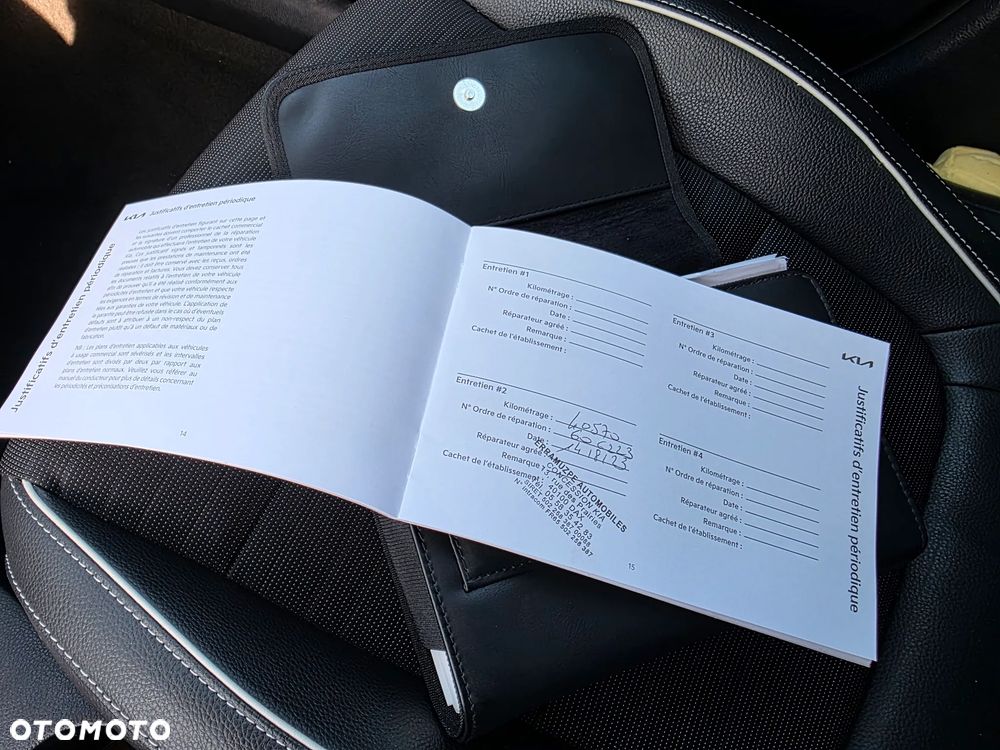 KIA Justificatifs d'entretien périodique
Les justificatifs d'entretien figurant sur cette page et
les suivantes doivent comporter le cachet commercial
et la signature d'un professionnel de la réparation
automobile qui effectuera l'entretien de votre véhicule
Kia. Ces justificatif signés et tamponnés sont les
preuves que les prestations de maintenance ont été
réalisées ; il doit être conservé avec les reçus, ordres
de réparation et factures. Vous devez conserver tous
les documents relatifs à l'entretien de votre véhicule
afin de prouver qu'il a été réalisé conformément aux
périodicités d'entretien et que votre véhicule respecte
les exigences en termes de révision et de maintenance
liées aux garanties de votre véhicule. L'application de
la garantie peut être refusée dans le cas où d'éventuels
défauts sont à attribuer à un non-respect du plan
d'entretien plutôt qu'à un défaut de matériaux ou de
fabrication.
NB : Les plans d'entretien applicables aux véhicules
à usage commercial sont sévérisés et les intervalles
d'entretien sont divisés par deux par rapport aux
plans d'entretien normaux. Veuillez vous référer au
manuel du conducteur pour plus de détails concernant
les périodicités et préconisations d'entretien.
Justificatifs d'entretien périodique
14
Entretien #1
Kilométrage :
N° Ordre de réparation :
Date :
Réparateur agréé :
Remarque :
Cachet de l'établissement :
Entretien #2
Kilométrage : 40570
N° Ordre de réparation :
Date :
Réparateur agréé :
Remarque :
Cachet de l'établissement :
ERRAMUZPE AUTOMOBILES
CONCESSION KIA
13, rue des Prairies
40100 DAX
Tél. 05 58 35 42 83
SIRET 802 258 387 00098
N° intracom FR85 802 258 387
Entretien #3
Kilométrage :
N° Ordre de réparation :
Date :
Réparateur agréé :
Remarque :
Cachet de l'établissement :
Entretien #4
Kilométrage :
N° Ordre de réparation :
Date :
Réparateur agréé :
Remarque :
Cachet de l'établissement :
15
KIA
Justificatifs d'entretien périodique
OTOMOTO